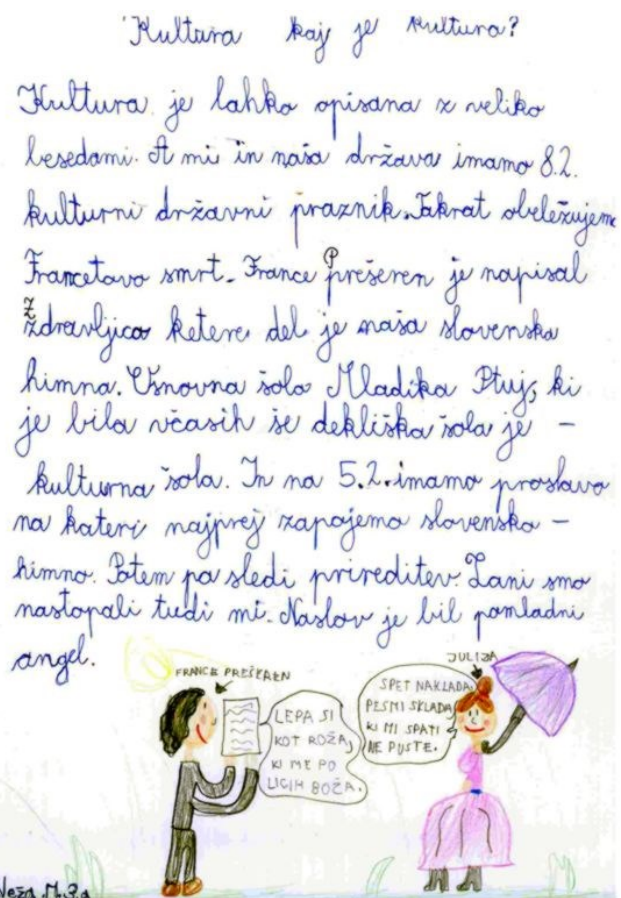 Kultura kaj je kultura?
Kultura je lahko opisana z veliko
besedami. A mi in naša država imamo 8.2.
kulturni državni praznik. Takrat obeležujemo
Francetovo smrt. France Prešeren je napisal
Zdravljico katere del je naša slovenska
himna. Osnovna šola Mladika Ptuj, ki
je bila včasih še dekliška šola je –
kulturna šola. In na 5.2. imamo proslavo
na kateri najprej zapojemo slovensko –
himno. Potem pa sledi prireditev. Lani smo
nastopali tudi mi. Naslov je bil pomladni
angel.
FRANCE PREŠEREN
LEPA SI
KOT ROŽA,
KI ME PO
LICIH BOŽA.
JULIJA
SPET NAKLADA,
PESMI SKLADA,
KI MI SPATI
NE PUSTE.
Neža M. 3.a